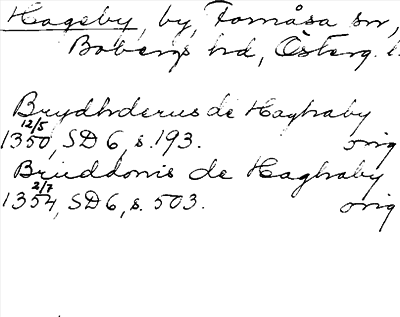 Hageby, by, Tomåsa sn,
Bobergs hd, Österg. l.
Brydhderus de Haghaby
1350 12/5, SD 6, s. 193. orig
Bruddonis de Haghaby
1354 2/7, SD 6, s. 503. orig